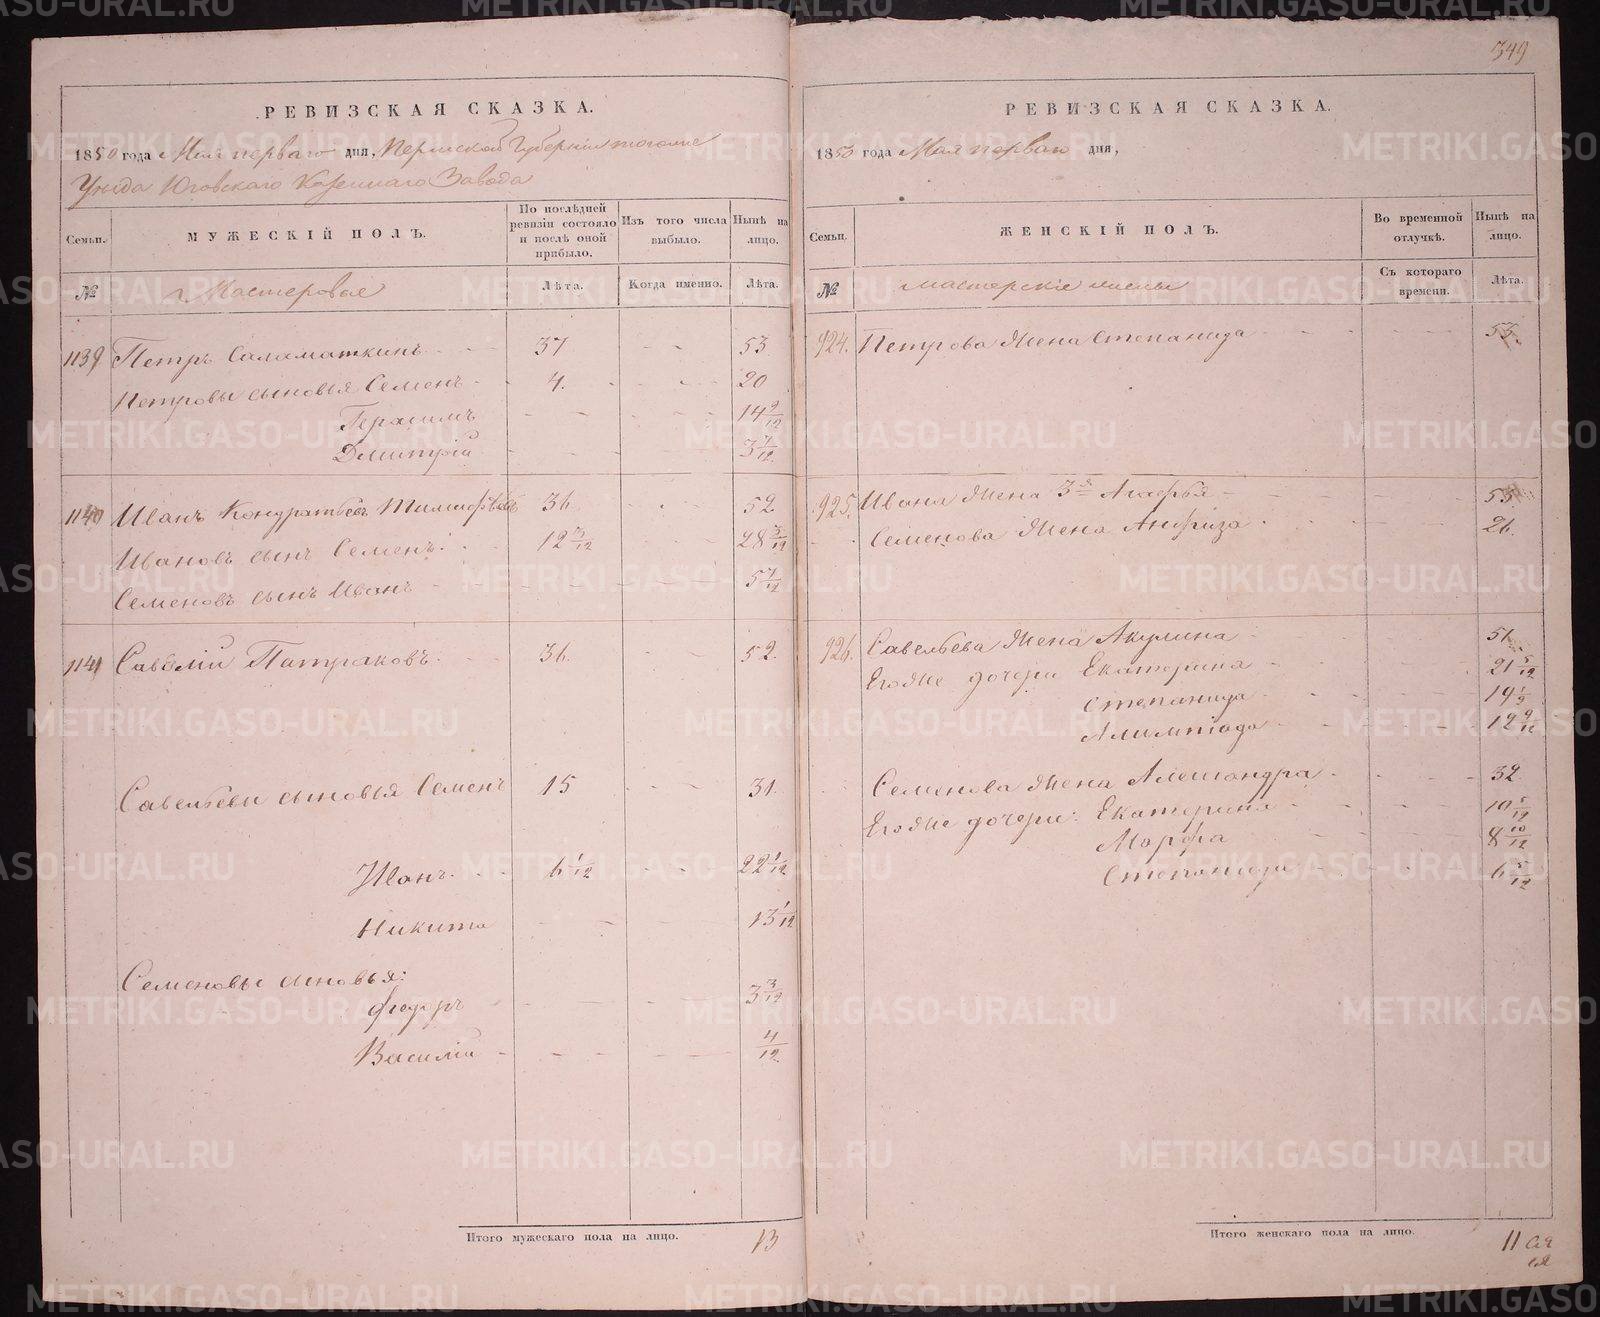 349
РЕВИЗСКАЯ СКАЗКА.
1850 года Мая перваго дня, Пермской Губернии тогоже
Уезда Юговскаго Казеннаго Завода
Семьи.
МУЖЕСКІЙ ПОЛЪ.
По послѣдней ревизіи состояло и послѣ оной прибыло.
Изъ того числа выбыло.
Нынѣ на лицо.
№
Мастеровые
Лѣта.
Когда именно.
Лѣта.
1139 Петръ Саламаткинъ 37 53
Петровы сыновья Семенъ 4. 20
Герасимъ 14 9/12
Дмитрій 3 7/12
1140 Иванъ Кондратьевъ 36 52
Ивановъ сынъ Семенъ 12 3/12 28 3/12
Семеновъ сынъ Иванъ 5 7/12
1141 Савелій Патраковъ 36. 52.
Савельевы сыновья Семенъ 15 31.
Иванъ 6 1/12 22 1/12
Никита 13 1/12
Семеновы сыновья:
Федоръ 3 3/12
Василій 4/12
Итого мужескаго пола на лицо. 13
РЕВИЗСКАЯ СКАЗКА.
1850 года Мая перваго дня,
Семьи.
ЖЕНСКІЙ ПОЛЪ.
Во временной отлучкѣ.
Нынѣ на лицо.
№
мастерскіе жены
Съ котораго времени.
Лѣта.
924. Петрова жена Степанида 53.
925. Ивана жена 3я Агафья 55
Семенова жена Анфиза 26.
926. Савельева жена Акулина 51
Егоже дочери Екатерина 21 5/12
Степанида 19
Алимпіада 12
Семенова жена Александра 32
Егоже дочери: Екатерина 10 5/12
Марфа 8 10/12
Степанида 6 5/12
Итого женскаго пола на лицо. 11
METRIKI.GASO-URAL.RU